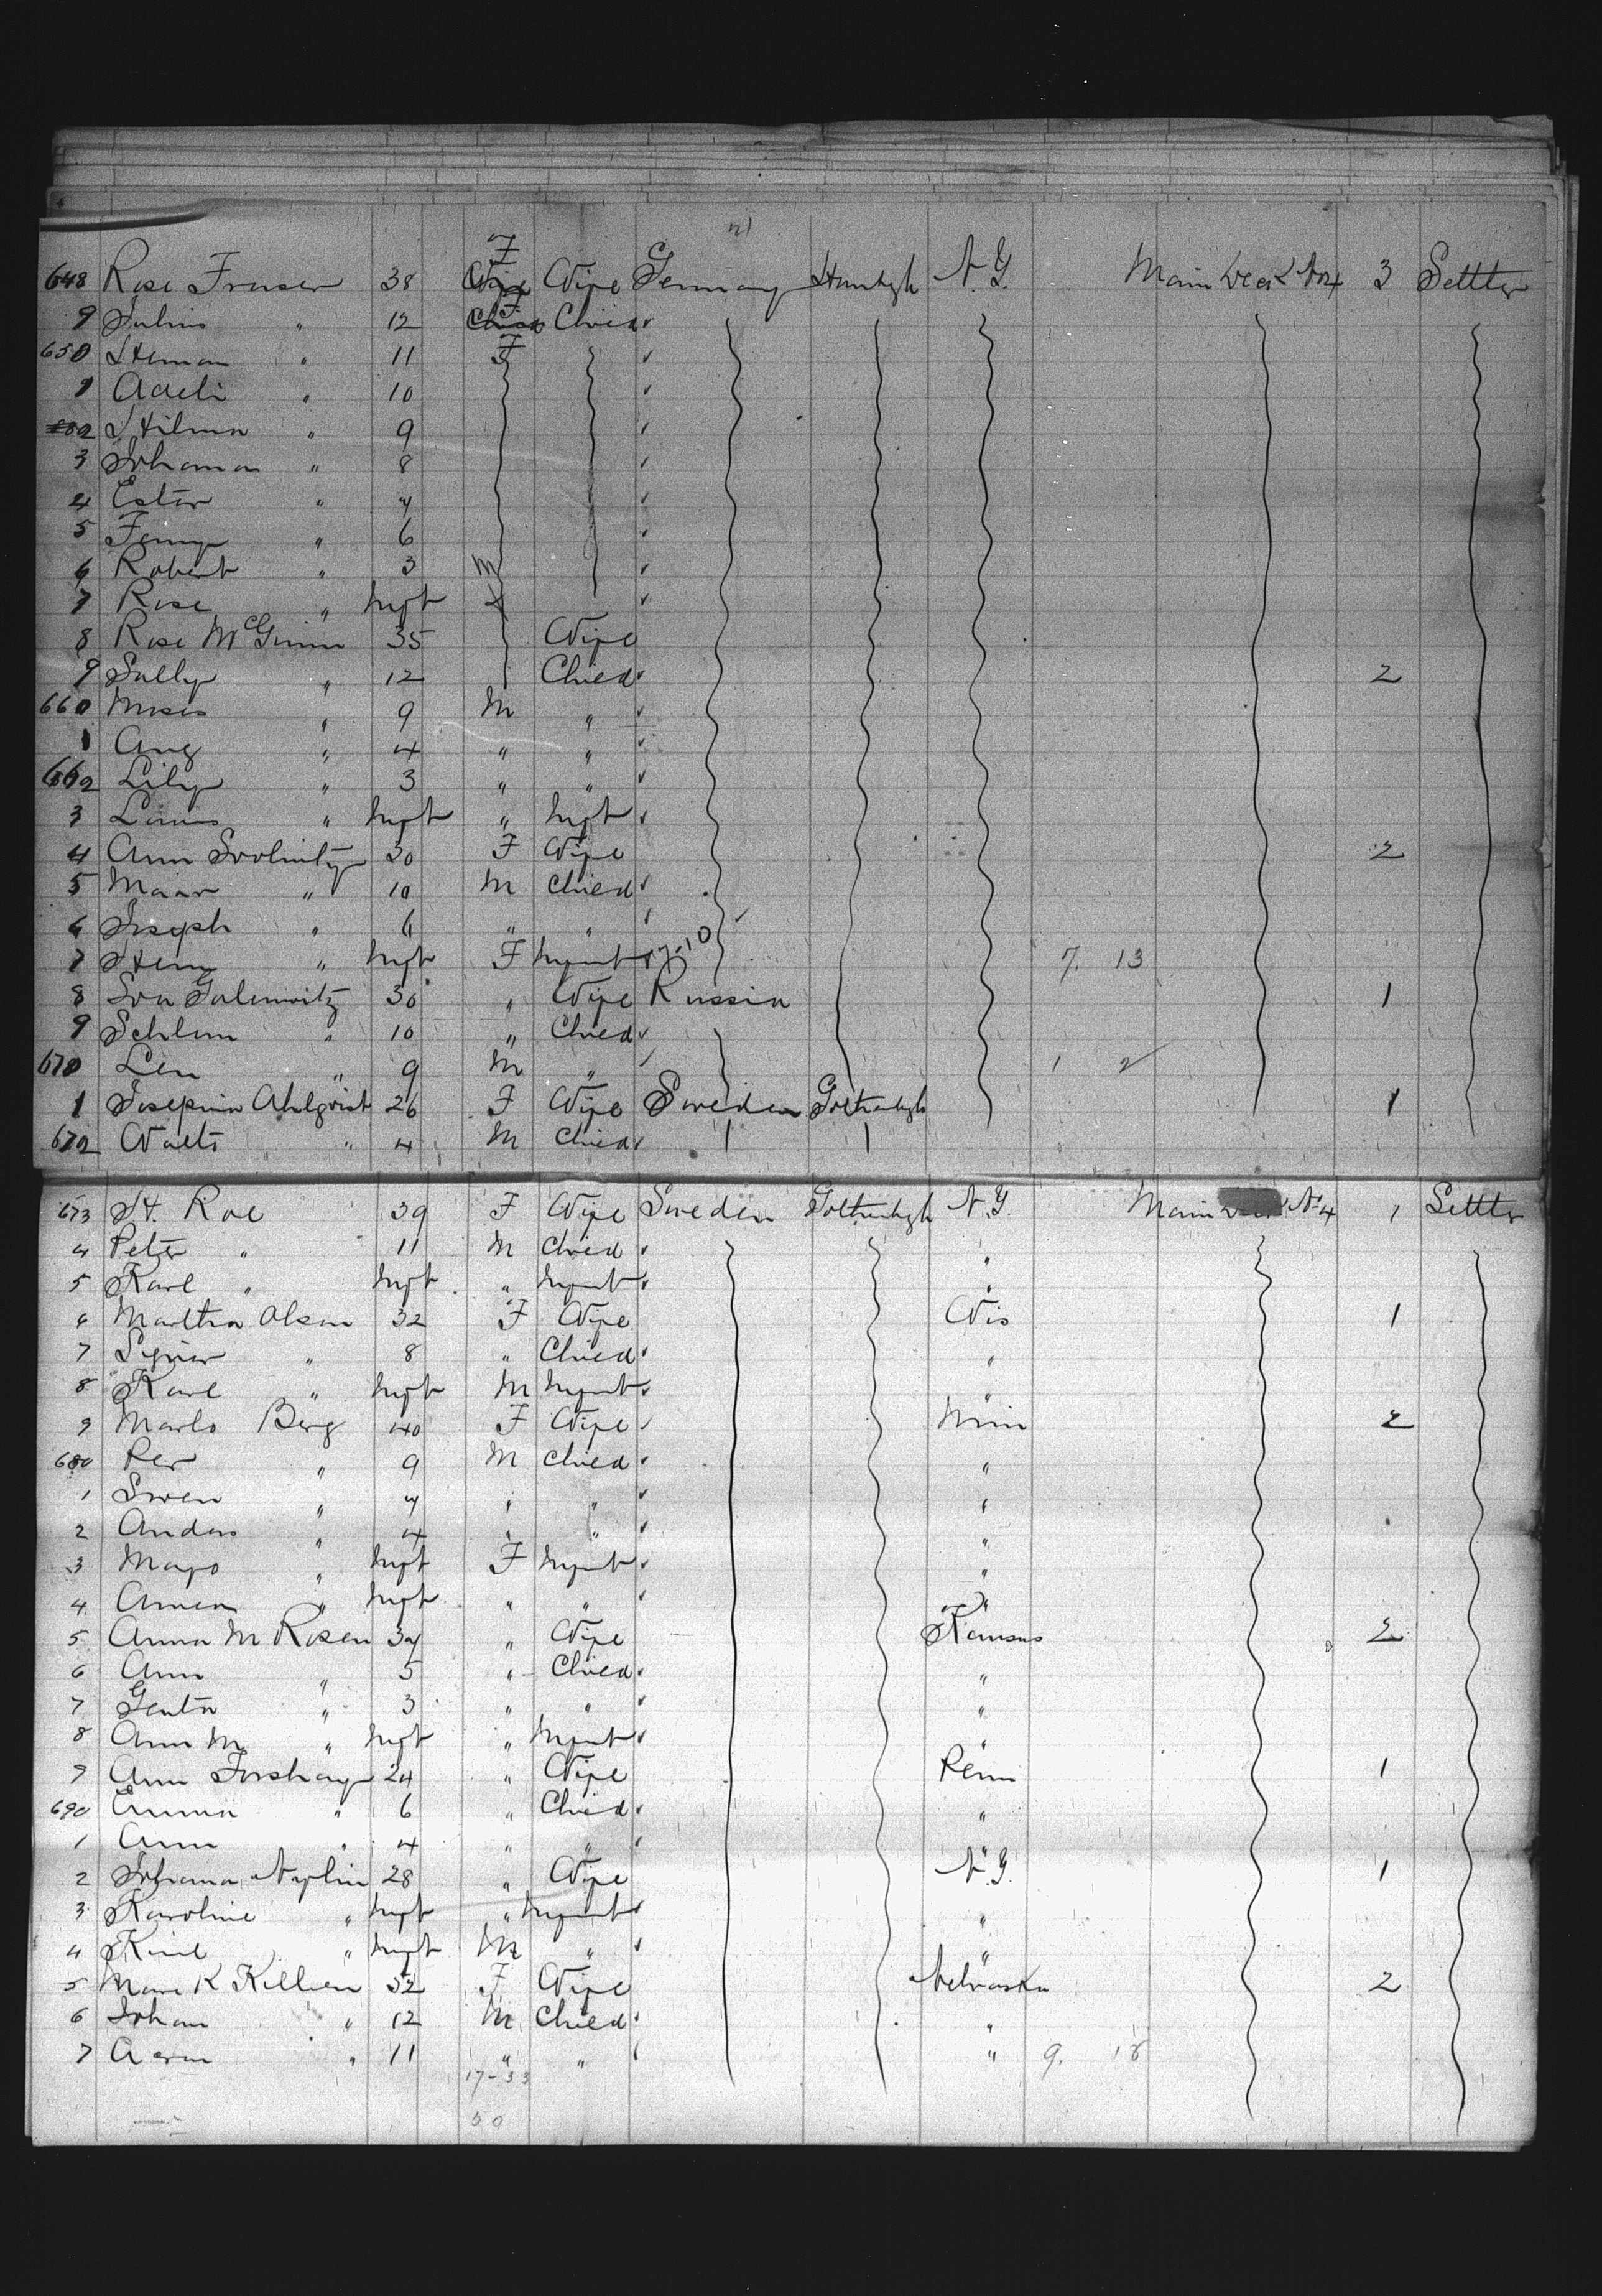 648 Rose Fraser 38 F Wife Germany Hambgh N.Y. Main Deck No 4 3 Settler
9 Julius " 12 F Child
650 Herman " 11 F
1 Adeli " 10
2 Hilma " 9
3 Johanna " 8
4 Ester " 7
5 Fenny " 6
6 Robert " 3 M
7 Rose " Inft
8 Rose McGinn 35 Wife
9 Sally " 12 Child 2
660 Moses " 9 M "
1 Aug " 4 " "
662 Lily " 3 " "
3 Louis " Inft " Inft
4 Ann 30 F Wife 2
5 " 10 M Child
6 Joseph " 6 " "
7 " Inft F Infant 17-10 7. 13
8 30 " Wife Russia 1
9 " 10 " Child
670 Len " 9 M " 1 2
1 Josephin Ahlqvist 26 F Wife Sweden Gothenbgh 1
672 " 4 M Child
673 H. Roe 39 F Wife Sweden Gothenbgh N.Y. Main Deck No 4 1 Settler
4 Peter " 11 M Child "
5 Karl " Inft " Infant "
6 Martha Olson 32 F Wife Wis 1
7 " 8 " Child "
8 Karl " Inft M Infant "
9 Berg 40 F Wife Minn 2
680 Per " 9 M Child "
1 Swen " 7 " " "
2 Anders " 4 " " "
3 " Inft F Infant "
4 " Inft " " "
5 Anna M Rosen 37 " Wife Kansas 2
6 Ann " 5 " Child "
7 " 3 " " "
8 Ann M " Inft " Infant "
9 Ann 24 " Wife Penn 1
690 Emma " 6 " Child "
1 Ann " 4 " " "
2 Johanna 28 " Wife N.Y. 1
3 Karoline " Inft " Infant "
4 " Inft M " "
5 K 32 F Wife Nebraska 2
6 Johan " 12 M Child "
7 " 11 " " " 9. 18
17-33
50